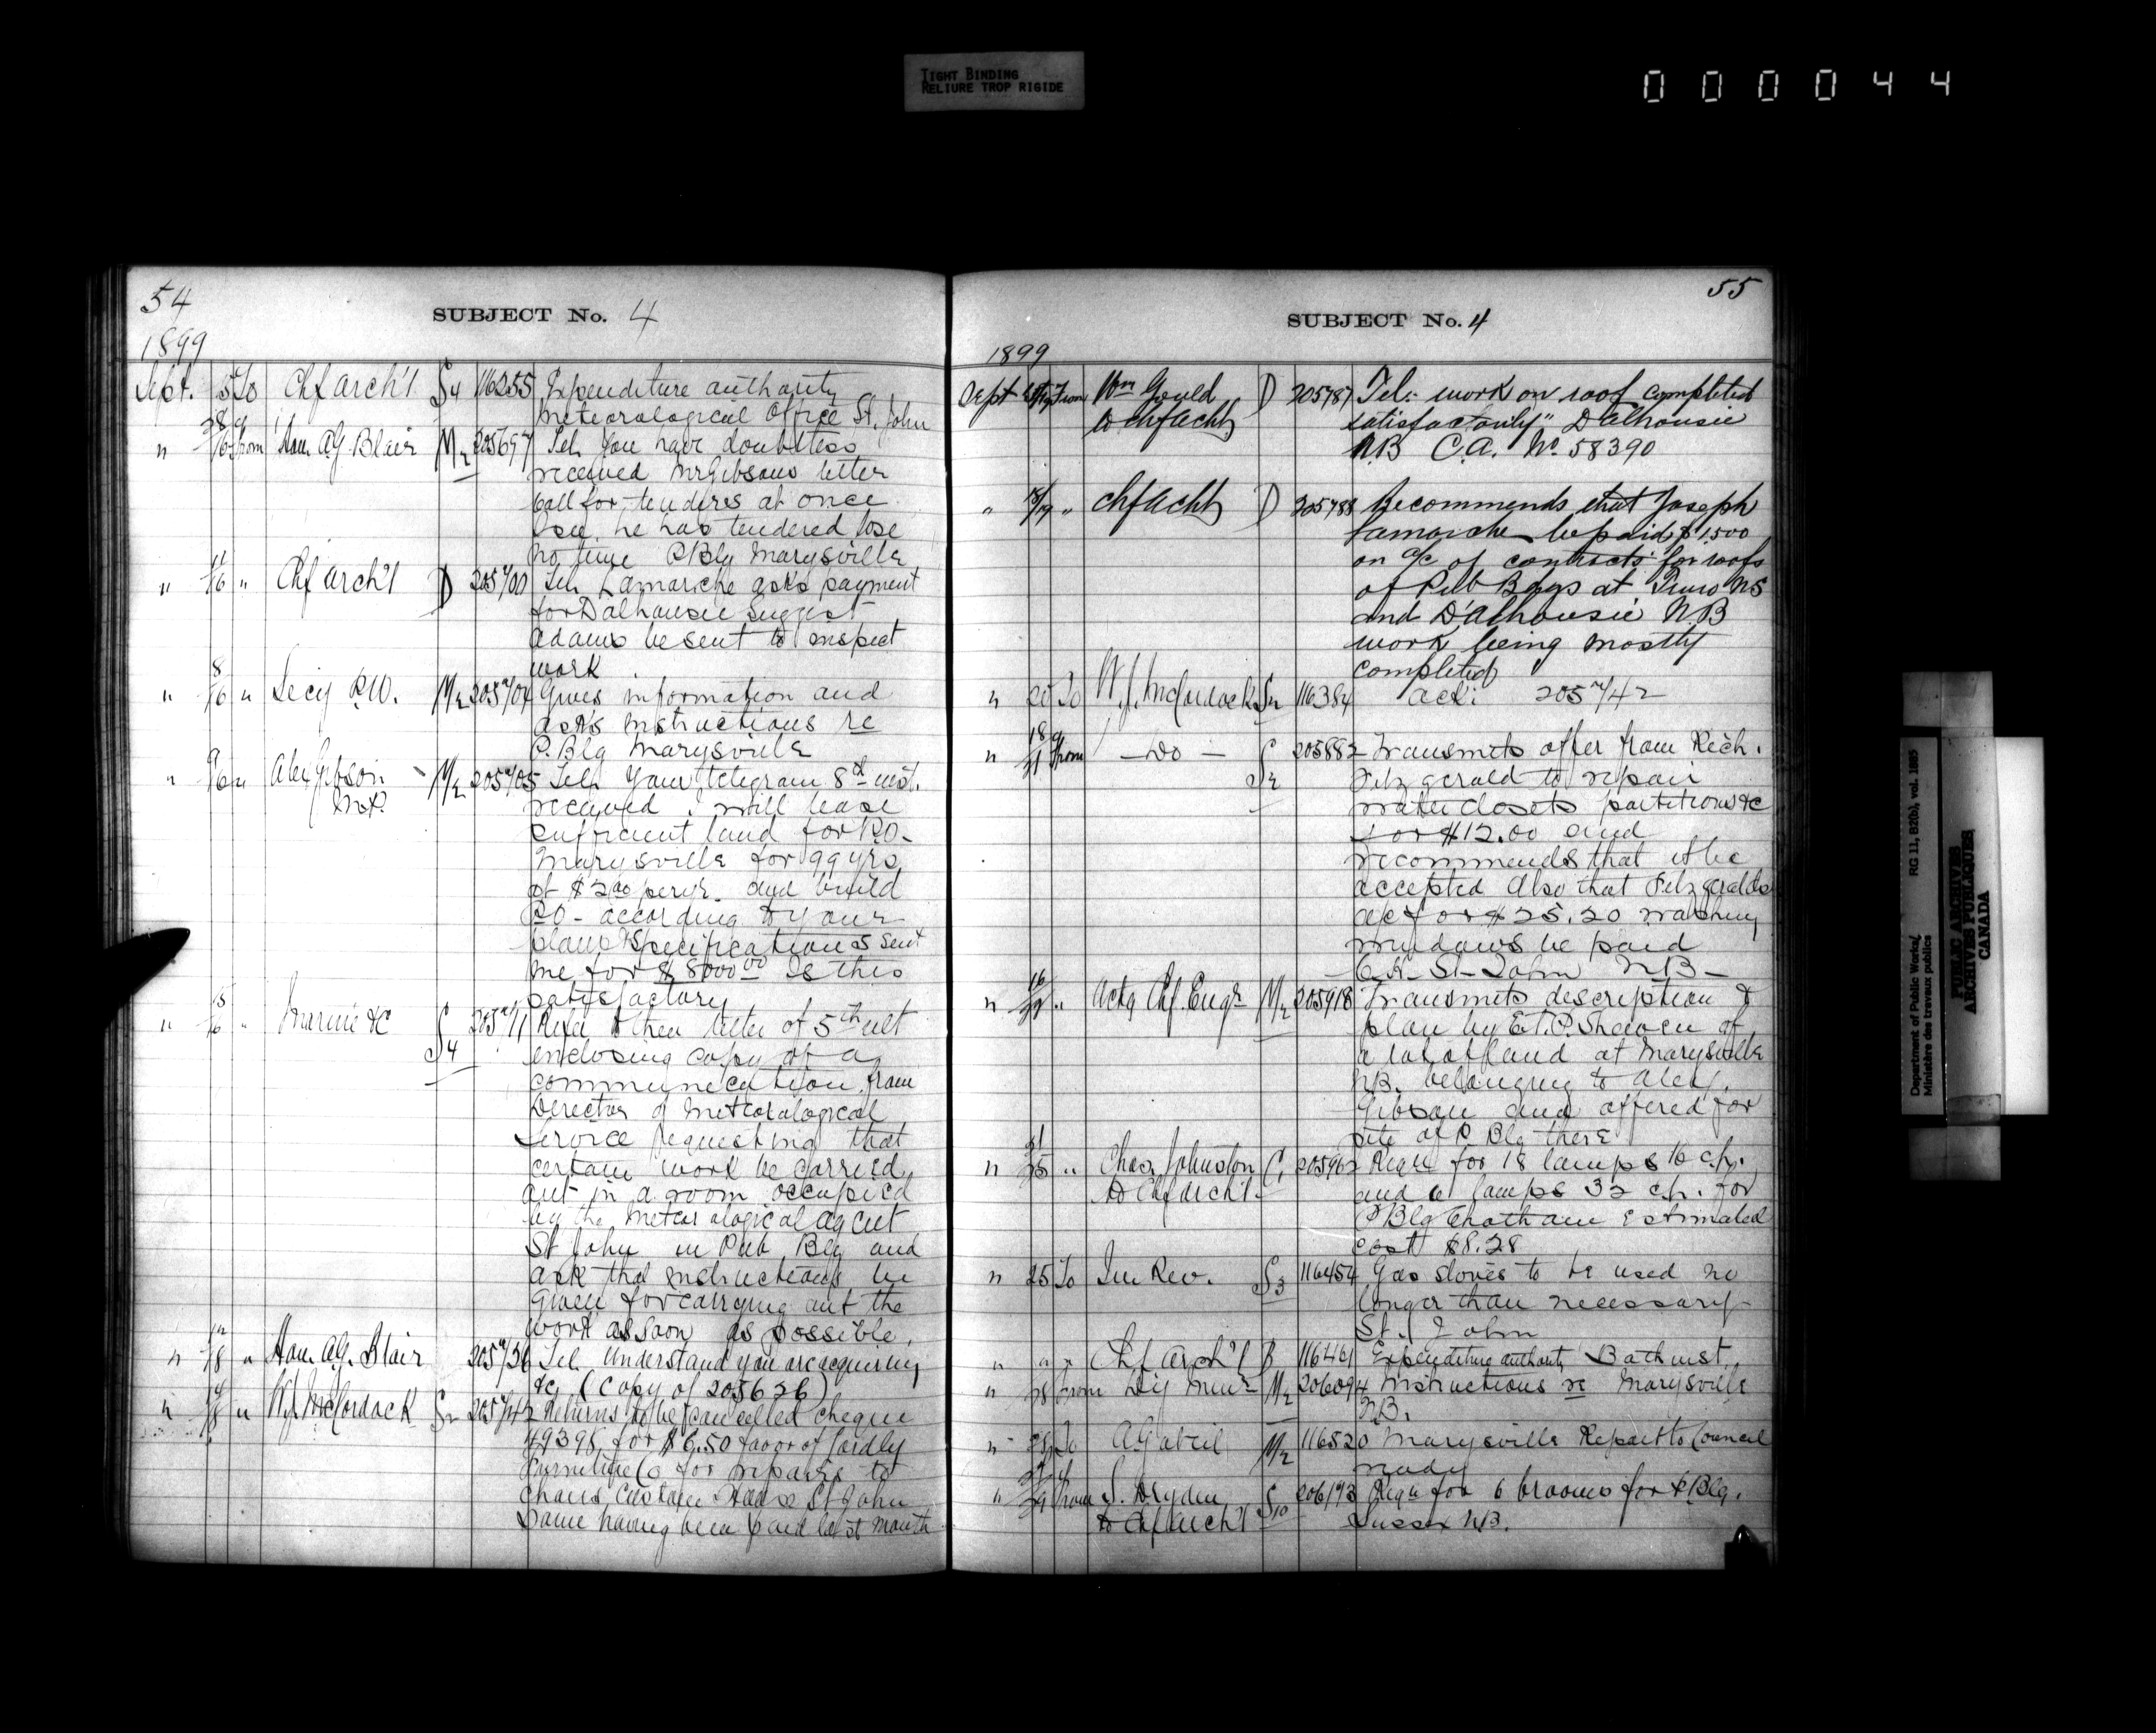 TIGHT BINDING
RELIURE TROP RIGIDE
000044
54
SUBJECT No. 4
1899
Sept. 5 To Chf arch't S4 116255 Expenditure authority
Meteorological Office St. John
" 6 from Hon. A.G. Blair M2 205697 Tel. You have doubtless
received Mr Gibsons letter
Call for tenders at once
he has tendered lose
no time P. Blg Marysville
" 11/16 " Chf arch't D 205700 Tel. Lamarche asks payment
for Dalhousie Suggest
Adams be sent to inspect
work.
" 8/16 " Secy P.W. M2 205704 Gives information and
asks instructions re
P. Blg Marysville
" 9/16 " Alex Gibson M2 205705 Tel. Your telegram 8th inst.
M.P. received. I will lease
sufficient land for P.O.
Marysville for 99 yrs
at $200 per yr. and build
P.O. according to your
plans & specifications sent
me for $8000.00 Is this
satisfactory
" 15/16 " Marine &c S4 205711 Refer to their letter of 5th ult
enclosing copy of a
communication from
Director of Meteorological
Service requesting that
certain work be carried
out in a room occupied
by the Meteorological agent
St John in Pub. Blg and
ask that instructions be
given for carrying out the
work as soon as possible.
" 12/18 " Hon. A.G. Blair 205736 Tel. Understand you are acquiring
&c (Copy of 205626)
" 18 " W.J. McCordock S2 205742 Returns to be cancelled cheque
49398 for $6.50 favor of
Furniture Co for repairs to
chairs Custom House St John
Same having been paid last month
55
SUBJECT No. 4
1899
Sept 19 From Wm Gould D 205787 Tel: work on roof completed
to Chf Acht satisfactorily" Dalhousie
N.B C.A. No. 58390
" 18/19 " Chf Acht D 205788 Recommends that Joseph
Lamarche be paid $1,500
on a/c of contracts for roofs
of Pub Bdgs at Truro NS
and D'alhousie NB
work being mostly
completed
" 20 To W.J. McCordock S2 116384 Ack: 205742
" 18/21 from — Do — S2 205882 Transmits offer from Rich.
Fitzgerald to repair
water closets partitions &c
for $12.00 and
recommends that it be
accepted Also that Fitzgeralds
a/c for $25.20 washing
windows be paid
C.H. St John N.B.
" 16 " Actg Chf. Engr M2 205918 Transmits description &
plan by E.T.P. Shewen of
a lot of land at Marysville
N.B. belonging to Alex.
Gibson and offered for
site of P. Blg there
" 21/25 " Chas. Johnston C1 205962 Reqn for 18 lamps 16 c.p.
to Chf Arch't. and 6 lamps 32 c.p. for
P Blg Chatham Estimated
cost $8.28
" 25 To In. Rev. S3 116454 Gas stoves to be used no
longer than necessary
St. John
" " " Chf Arch't B 116461 Expenditure authority Bathurst
" 28 from Dy Minr M2 206094 Instructions re Marysville
N.B.
" 28 To M2 116520 Marysville Report to Council
ready
" 29 from S. Dryden S10 206193 Reqn for 6 brooms for P. Blg.
to Chf Arch't Sussex N.B.
Department of Public Works/
Ministère des travaux publics
RG 11, B2(b), vol. 1885
PUBLIC ARCHIVES
ARCHIVES PUBLIQUES
CANADA